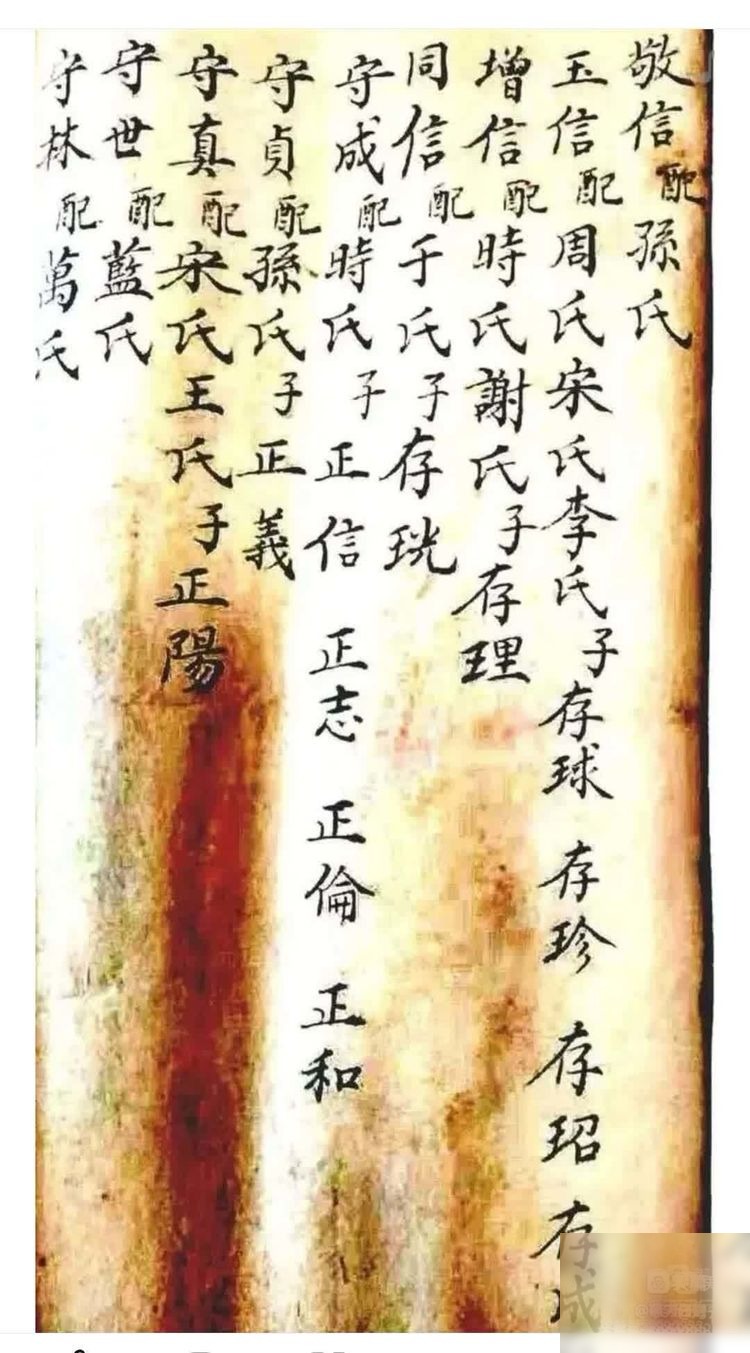 敬信配孫氏
玉信配周氏宋氏李氏子存球 存珍 存玿 存
增信配時氏謝氏子存理
同信配于氏子存珖
守成配時氏子正信 正志 正倫 正和
守貞配孫氏子正義
守真配宋氏王氏子正陽
守世配藍氏
守林配萬氏